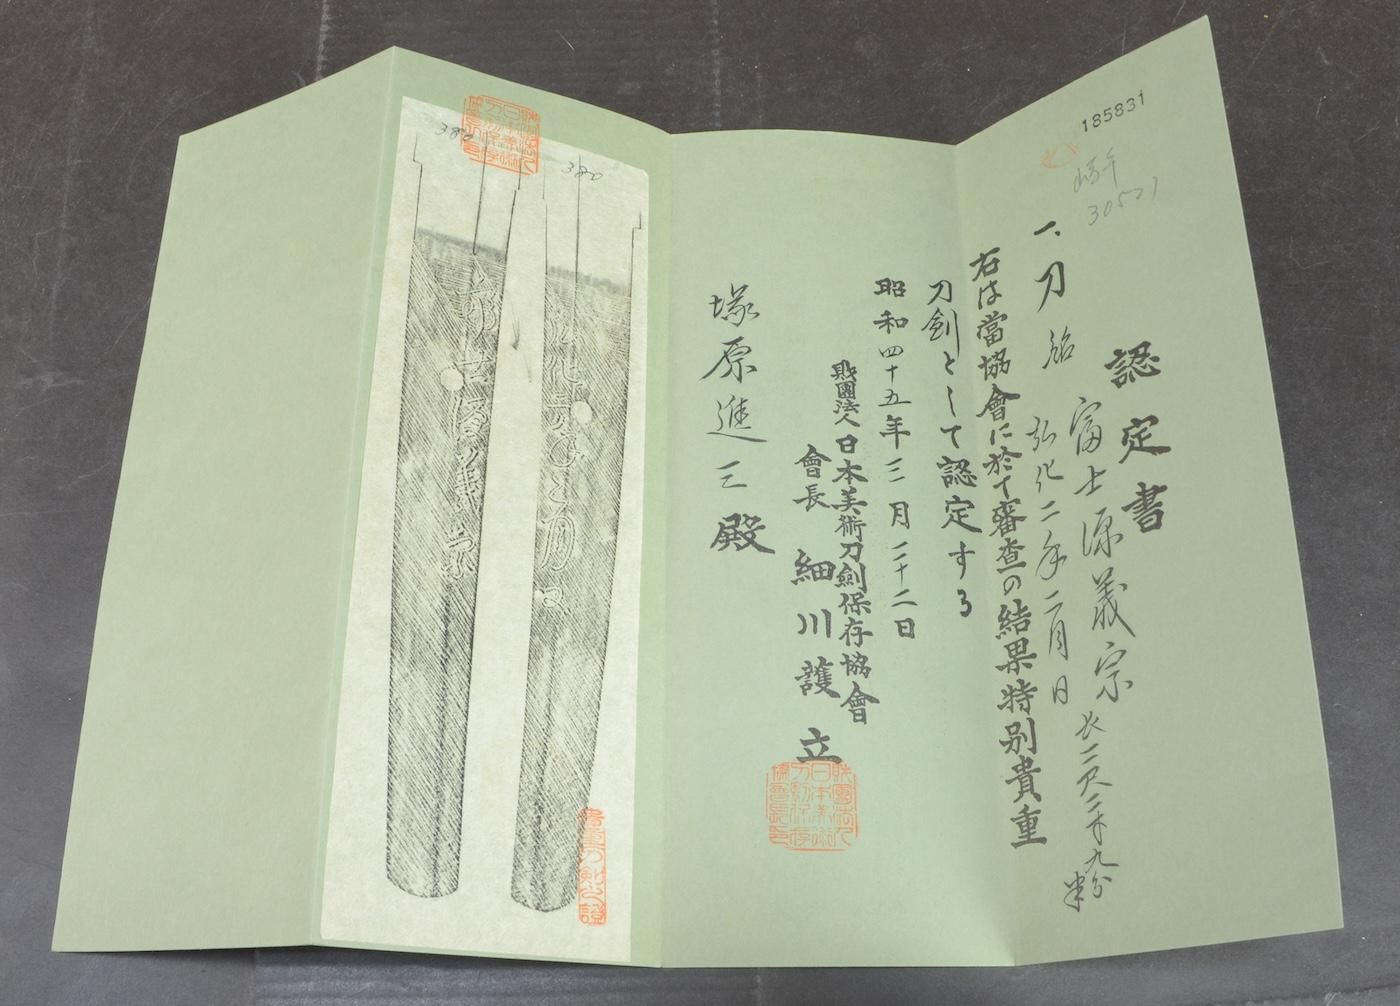 185831
30527
認定書
一、刀 銘 富士源義宗 長二尺三寸九分半
弘化二年二月日
右は當協會に於て審査の結果特別貴重
刀劍として認定する
昭和四十五年三月二十二日
財團法人日本美術刀劍保存協會
會長 細川護立
塚原進三殿
財團法人
日本美術
刀劍保存
協會長印
380
380
財團法人
日本美術
刀劍保存
協會長印
貴重刀劍之證